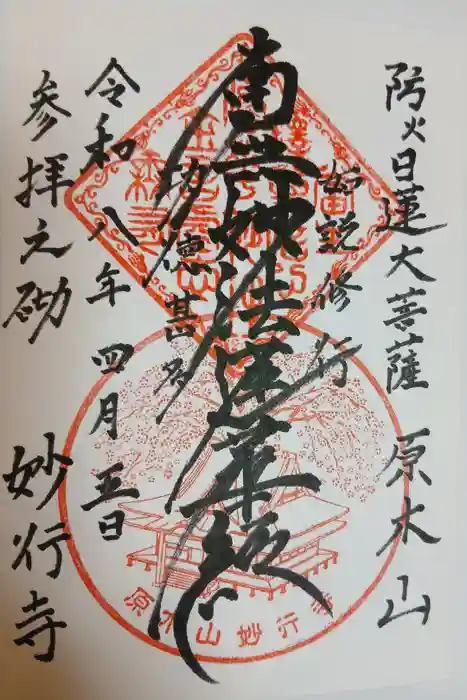 防火日蓮大菩薩 原木山
如説修行
南無妙法蓮華経
功徳甚多
令和八年 四月 五日
参拝之砌 妙行寺
原木山妙行寺